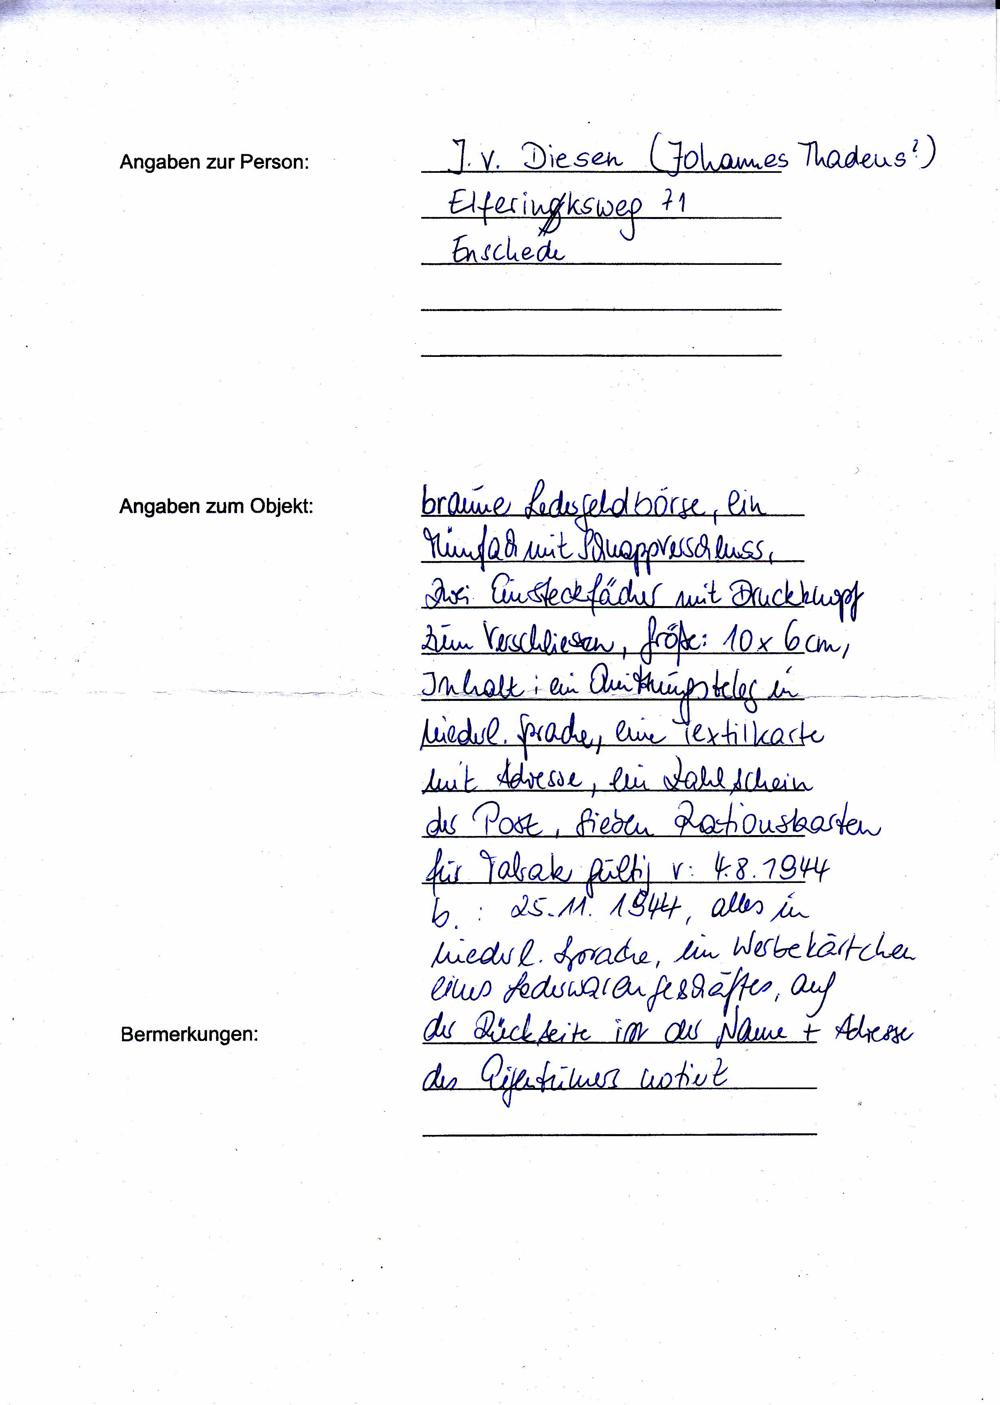 Angaben zur Person:
J. v. Diesen (Johannes Thadeus?)
Elferingksweg 71
Enschede
Angaben zum Objekt:
braune Ledergeldbörse, ein
Münzfach mit Schnappverschluss,
zwei Einsteckfächer mit Druckknopf
zum Verschliesen, Größe: 10 x 6 cm,
Inhalt: ein Quittungsbeleg in
niederl. Sprache, eine Textilkarte
mit Adresse, ein Zahlschein
der Post, sieben Rationskarten
für Tabak gültig v: 4.8.1944
b. : 25.11. 1944, alles in
niederl. Sprache, ein Werbekärtchen
eines Lederwarengeschäftes, auf
Bermerkungen:
der Rückseite ist der Name + Adresse
des Eigentümers notiert